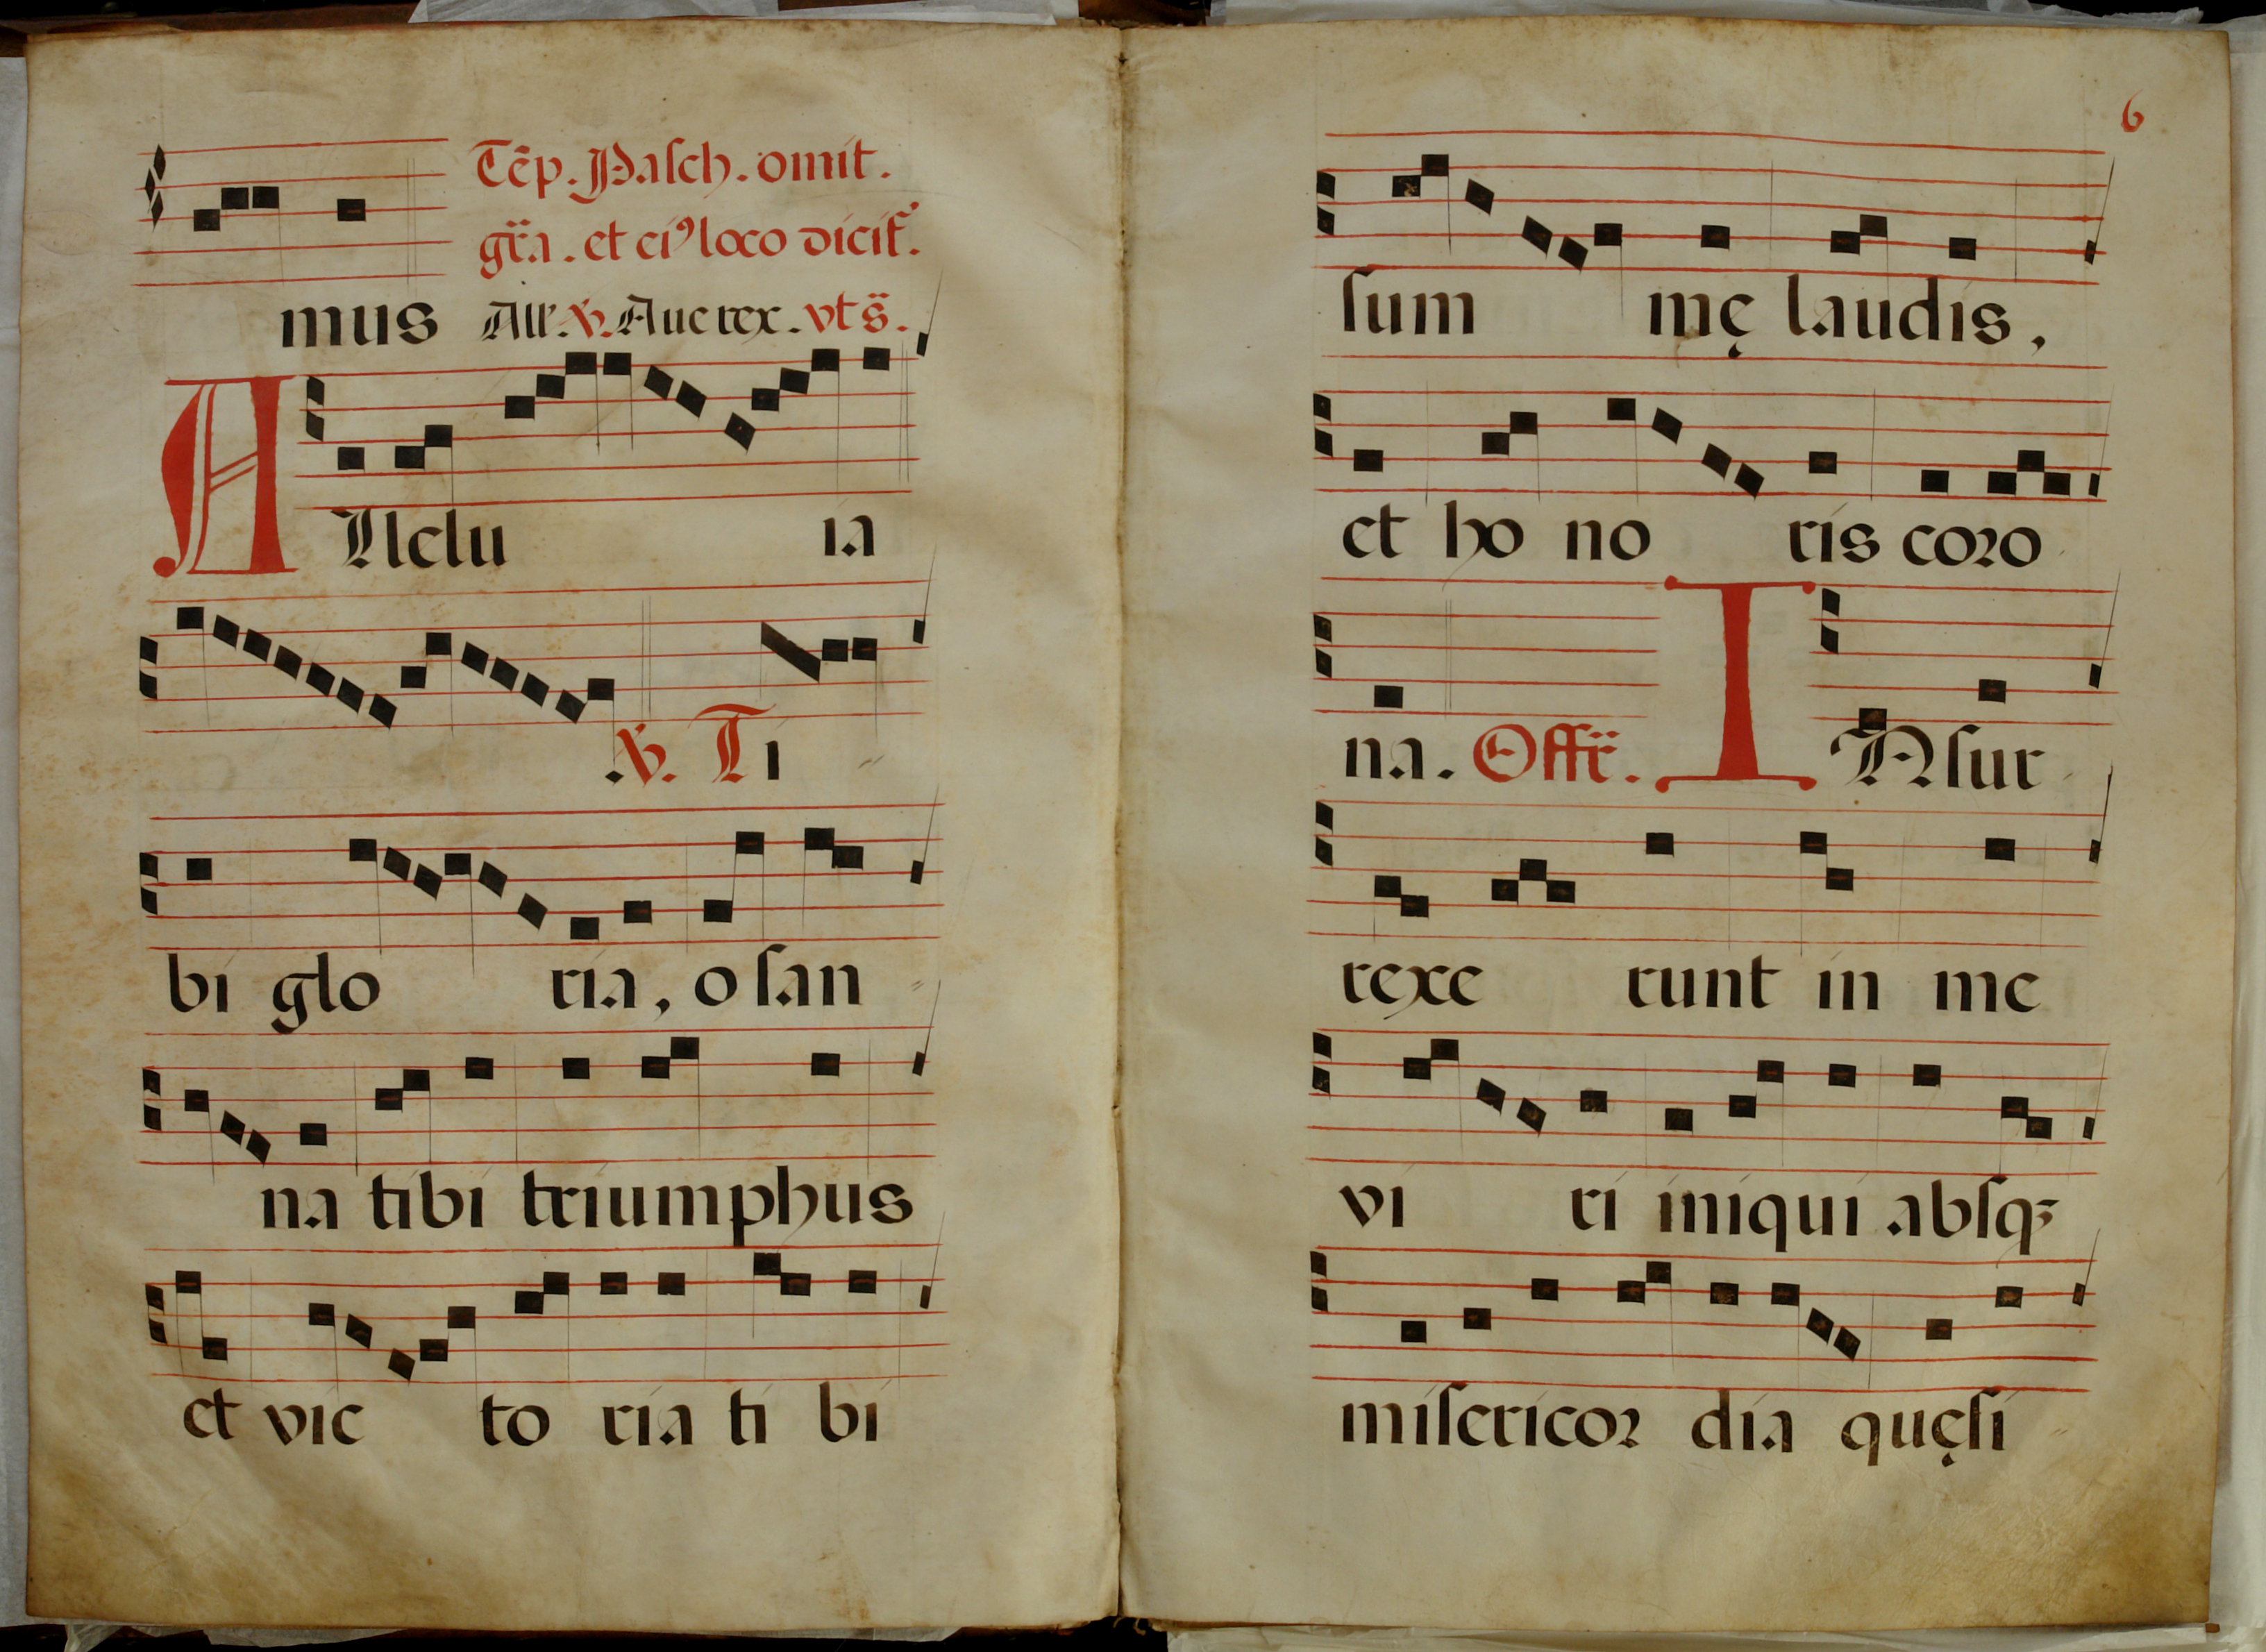 Tẽp. Paſch. omit.
gr̃a. et ei⁹ loco dicit̃.
mus All'. ℣. Aue rex. vt s̃.
ALlelu ia
.℣. Ti
bi glo ria, o ſan
na tibi triumphus
et vic to ria ti bi
6
ſum mę laudis,
et ho no ris coꝛo
na. Offr̃. INſur
rexe runt in me
vi ri iniqui abſqꝫ
miſericoꝛ dia quęſi